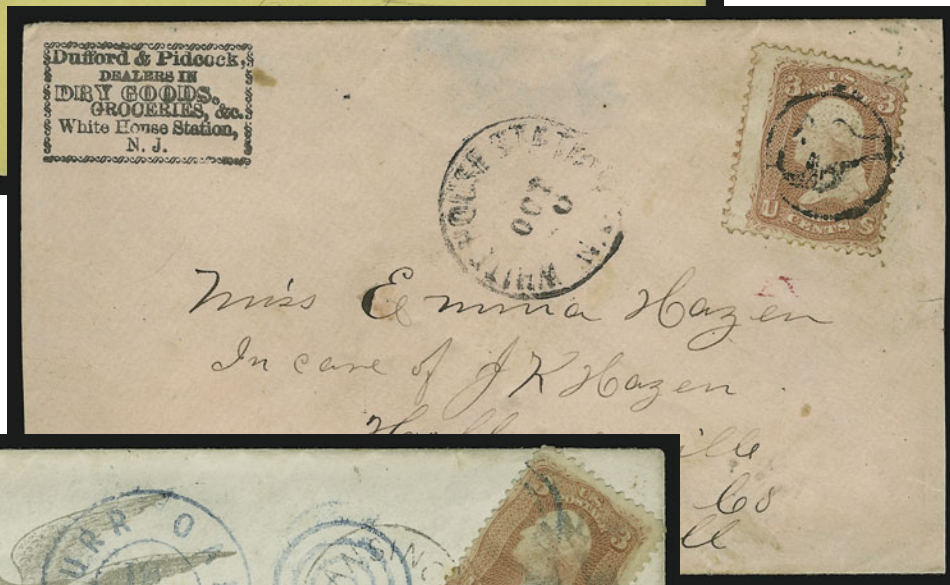 Dufford & Pidcock,
DEALERS IN
DRY GOODS,
GROCERIES, &c.
White House Station,
N. J.
WHITE HOUSE STATION N.J.
OCT
3 U.S. 3
U 3 CENTS S
Miss Emma Hazen
In care of J K Hazen
ville
Co
ll
URR O
ANSING
U.S.
3